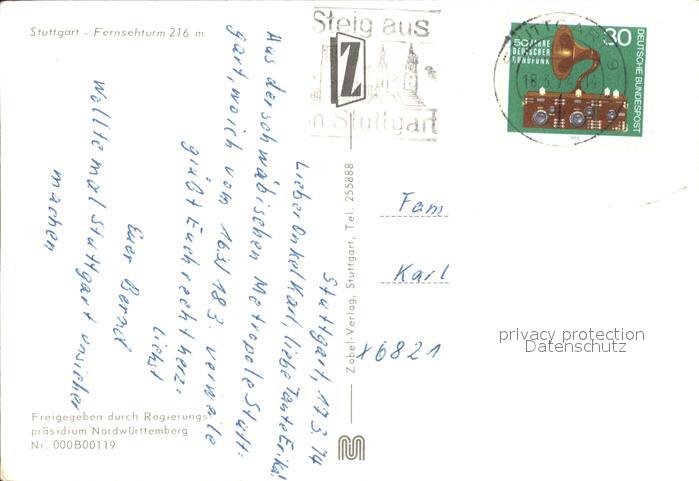 Stuttgart - Fernsehturm 216 m
Steig aus
in Stuttgart
50 JAHRE
DEUTSCHER
RUNDFUNK
30
DEUTSCHE BUNDESPOST
Stuttgart, 17.3.74
Lieber Onkel Karl, liebe Tante Erika!
Aus der schwäbischen Metropole Stutt-
gart, wo ich vom 16.3/18.3. verweile
grüßt Euch recht herz-
lichst
Euer Bernd
Wollte mal Stuttgart unsicher
machen
Zobel-Verlag, Stuttgart, Tel. 255888
Fam.
Karl
x6821
privacy protection
Datenschutz
Freigegeben durch Regierungs-
präsidium Nordwürttemberg
Nr. 000B00119